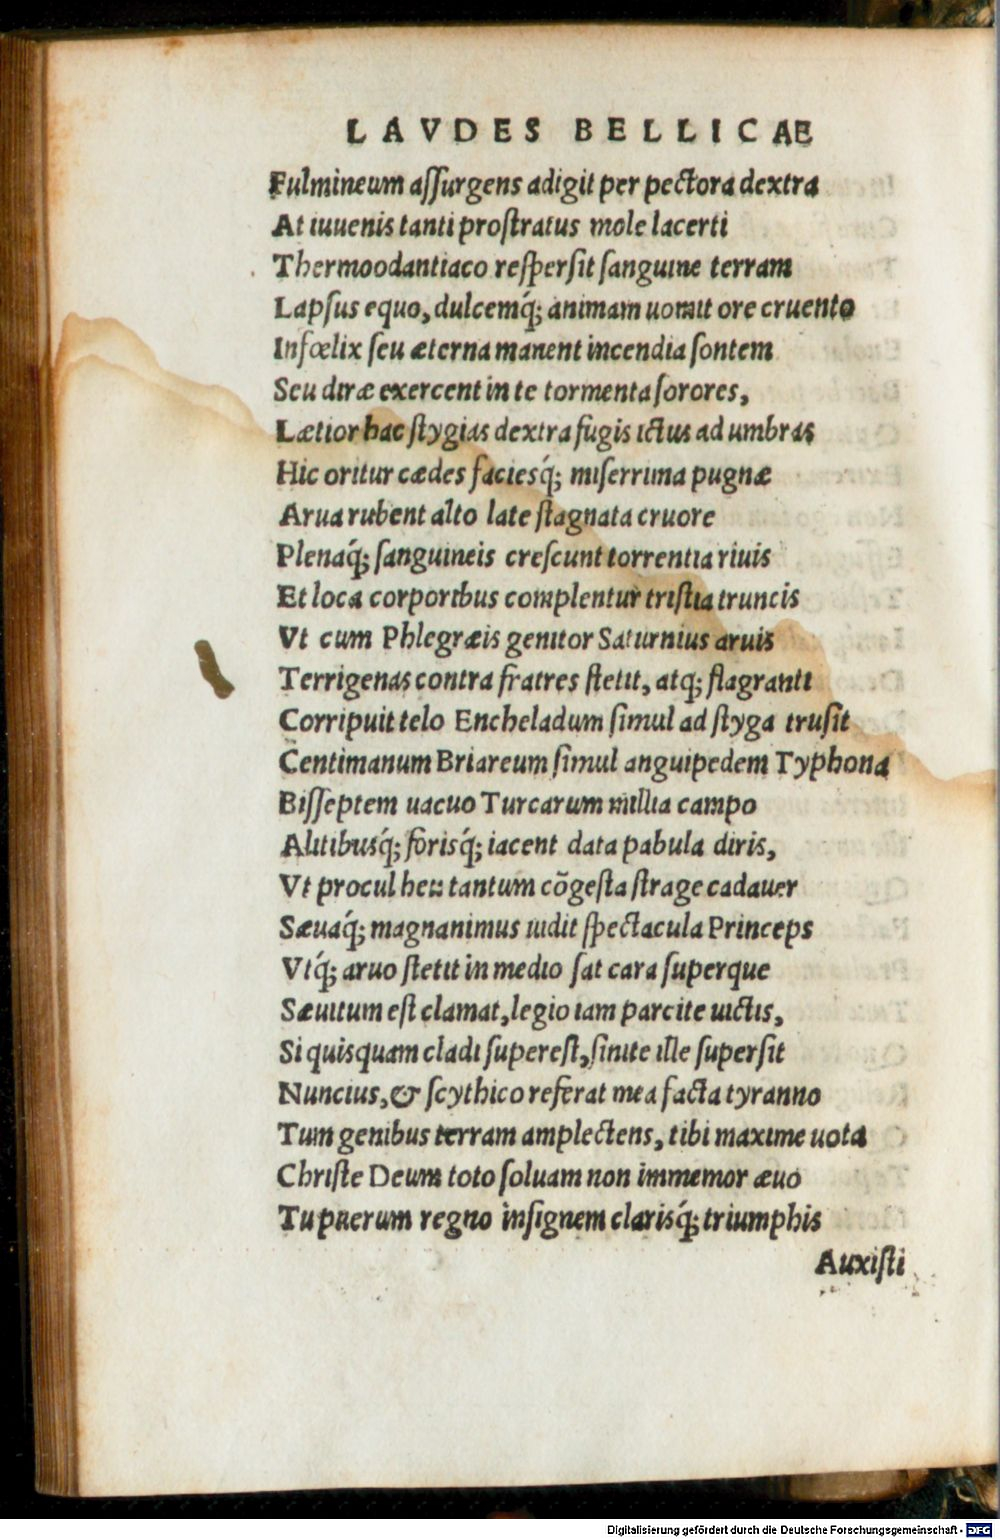 LAVDES BELLICAE
Fulmineum aſſurgens adigit per pectora dextra
At iuuenis tanti proſtratus mole lacerti
Thermoodantiaco reſperſit ſanguine terram
Lapſus equo, dulcemq́; animam uomit ore cruento
Infœlix ſeu æterna manent incendia ſontem
Seu diræ exercent in te tormenta ſorores,
Lætior hac ſtygias dextra fugis ictus ad umbras
Hic oritur cædes faciesq́; miſerrima pugnæ
Arua rubent alto late ſtagnata cruore
Plenaq́; ſanguineis creſcunt torrentia riuis
Et loca corporibus complentur triſtia truncis
Vt cum Phlegræis genitor Saturnius aruis
Terrigenas contra fratres ſtetit, atq; flagranti
Corripuit telo Encheladum ſimul ad ſtyga truſit
Centimanum Briareum ſimul anguipedem Typhona
Biſſeptem uacuo Turcarum millia campo
Alitibusq́; ferisq́; iacent data pabula diris,
Vt procul heu tantum cõgeſta ſtrage cadauer
Sæuaq́; magnanimus uidit ſpectacula Princeps
Vtq́; aruo ſtetit in medio ſat cara ſuperque
Sæuitum eſt clamat, legio iam parcite uictis,
Si quisquam cladi ſupereſt, ſinite ille ſuperſit
Nuncius, & ſcythico referat mea facta tyranno
Tum genibus terram amplectens, tibi maxime uota
Chriſte Deum toto ſoluam non immemor æuo
Tu puerum regno inſignem clarisq́; triumphis
Auxiſti
Digitalisierung gefördert durch die Deutsche Forschungsgemeinschaft - DFG